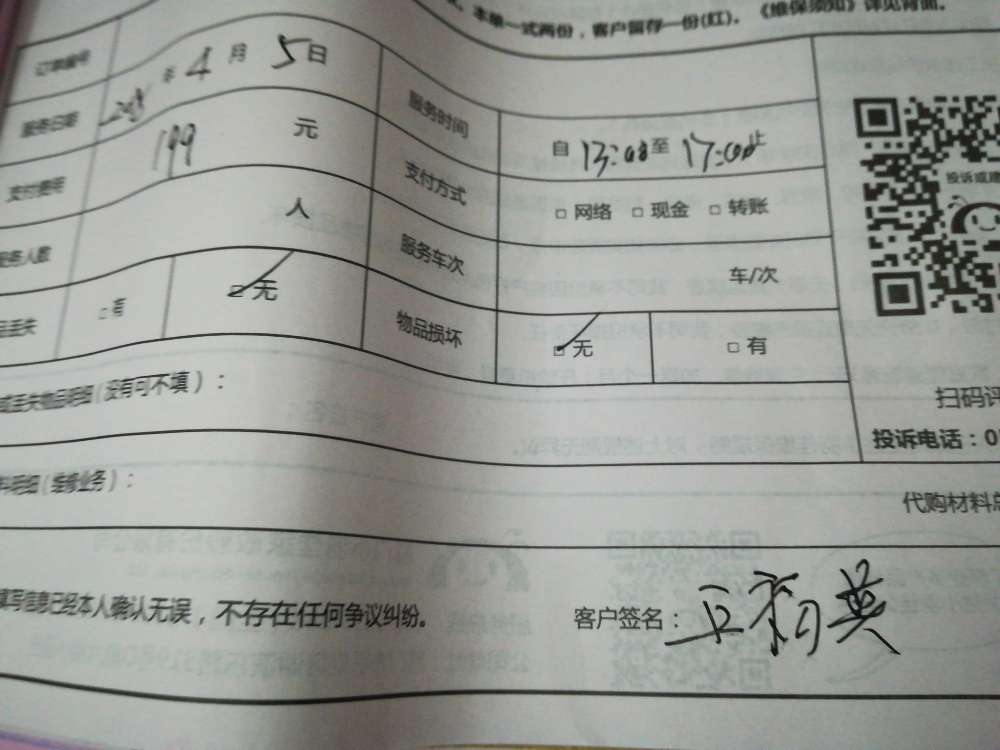 本单一式两份，客户留存一份(红)。《维保须知》详见背面。
订单编号
服务日期 年 4 月 5 日 服务时间 自 13:00 至 17:00 止
支付费用 199 元 支付方式 □ 网络 □ 现金 □ 转账
服务人数 人 服务车次 车/次
品丢失 □ 有 ☑ 无 物品损坏 ☑ 无 □ 有
投诉或建
扫码评
或丢失物品明细（没有可不填）：
投诉电话：0
料明细（维修业务）：
代购材料总
填写信息已经本人确认无误，不存在任何争议纠纷。
客户签名：